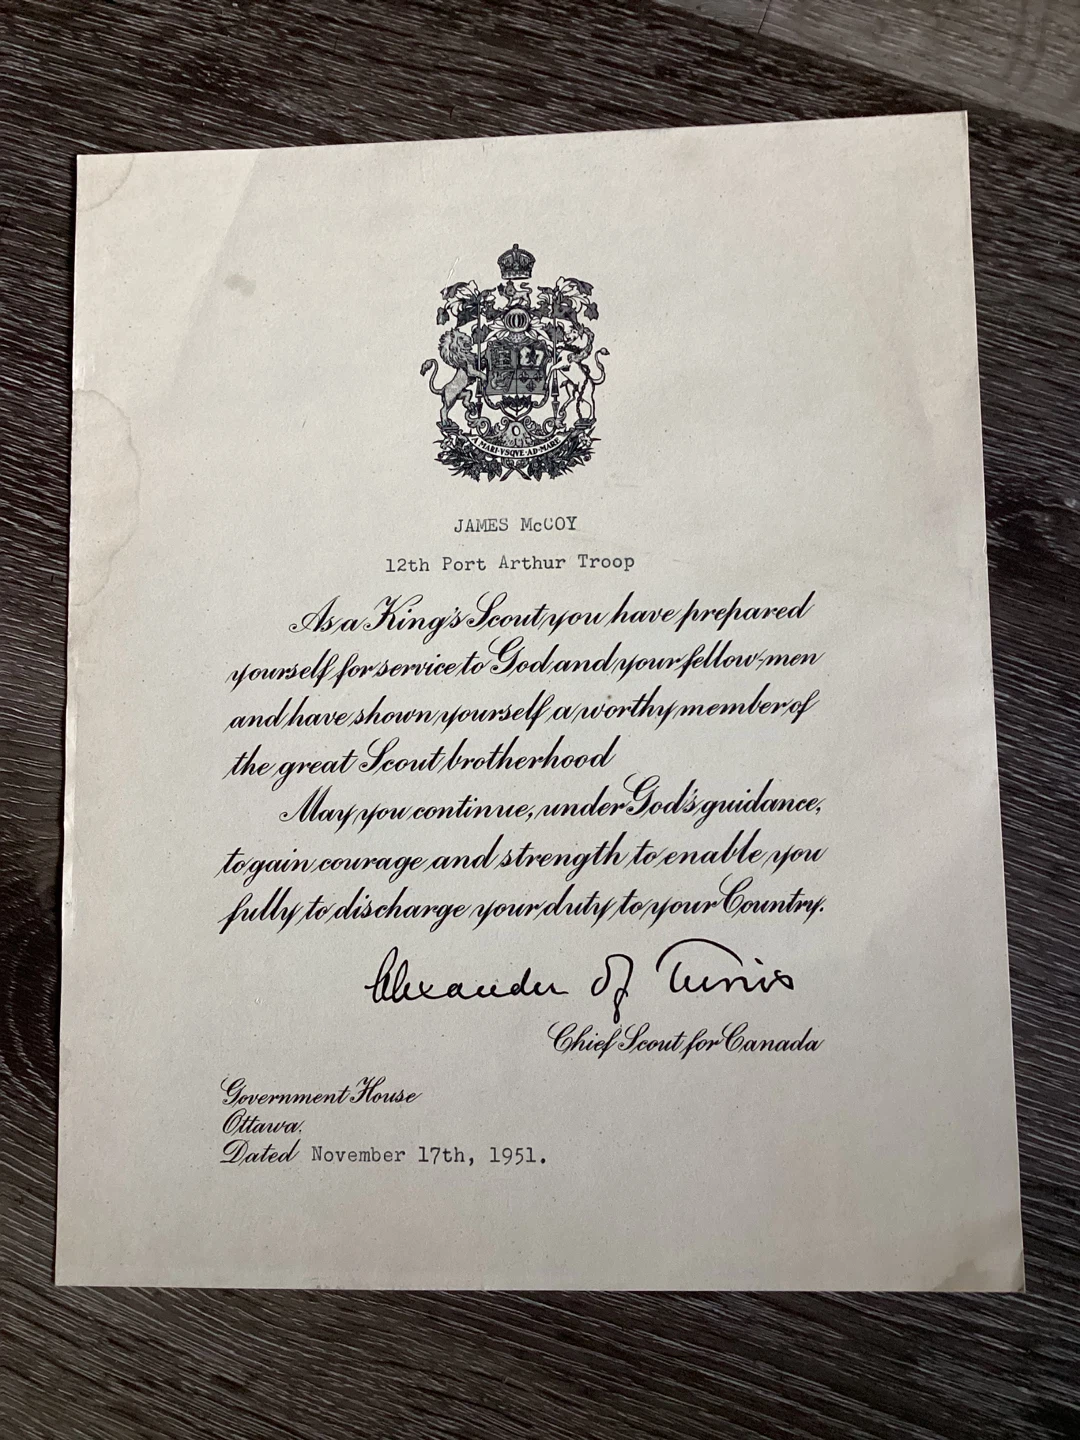 A·MARI·VSQVE·AD·MARE
JAMES McCOY
12th Port Arthur Troop
As a King's Scout you have prepared
yourself for service to God and your fellow-men
and have shown yourself a worthy member of
the great Scout brotherhood
May you continue, under God's guidance,
to gain courage and strength to enable you
fully to discharge your duty to your Country.
Alexander of Tunis
Chief Scout for Canada
Government House
Ottawa.
Dated November 17th, 1951.